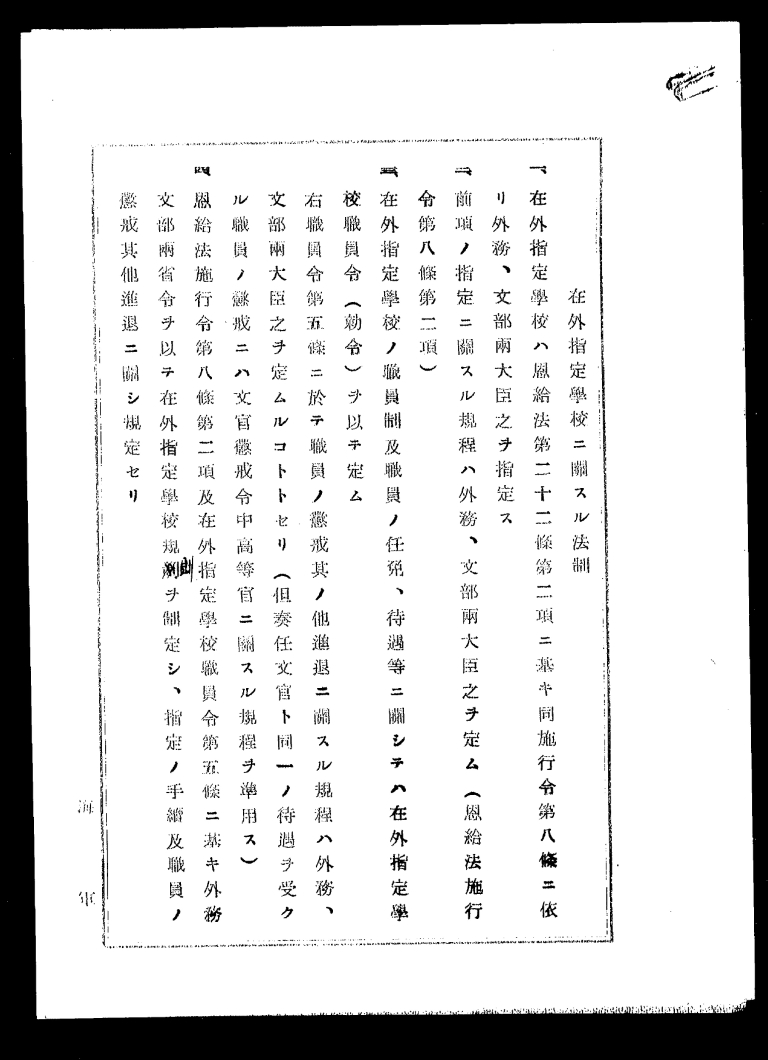 在外指定學校ニ關スル法制
一、在外指定學校ハ恩給法第二十二條第二項ニ基キ同施行令第八條ニ依
リ外務、文部兩大臣之ヲ指定ス
二、前項ノ指定ニ關スル規程ハ外務、文部兩大臣之ヲ定ム（恩給法施行
令第八條第二項）
三、在外指定學校ノ職員制及職員ノ任免、待遇等ニ關シテハ在外指定學
校職員令（勅令）ヲ以テ定ム
右職員令第五條ニ於テ職員ノ懲戒其ノ他進退ニ關スル規程ハ外務、
文部兩大臣之ヲ定ムルコトトセリ（但奏任文官ト同一ノ待遇ヲ受ク
ル職員ノ懲戒ニハ文官懲戒令中高等官ニ關スル規程ヲ準用ス）
四、恩給法施行令第八條第二項及在外指定學校職員令第五條ニ基キ外務
文部兩省令ヲ以テ在外指定學校規則ヲ制定シ、指定ノ手續及職員ノ
懲戒其他進退ニ關シ規定セリ
海軍